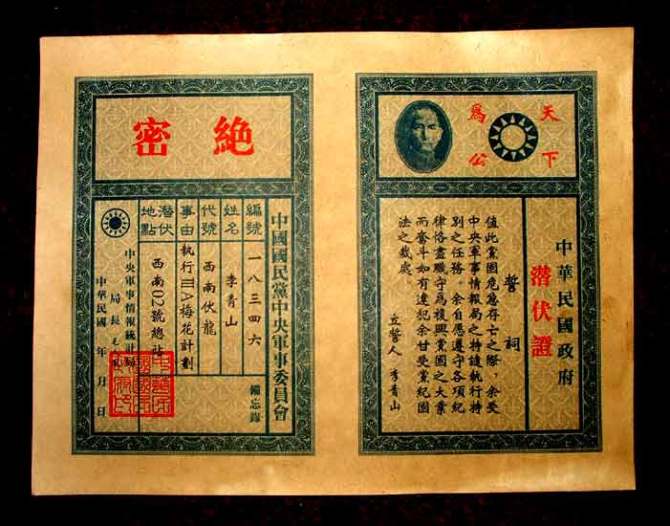 天下
爲公
中華民國政府
潛伏證
誓詞
值此黨國危急存亡之際，余受
中央軍事情報局之特諉執行特
別之任務，余自愿遵守各項紀
律恪盡職守爲復興黨國之大業
而奮斗如有違犯余甘受黨紀國
法之裁處。
立誓人 李青山
絶密
中國國民黨中央軍事委員會
備忘錄
編號 一八三四六
姓名 李青山
代號 西南伏龍
事由 執行IIIA梅花計劃
潛伏地點 西南02號總站
中央軍事情報統計局
局長
中華民國 年 月 日